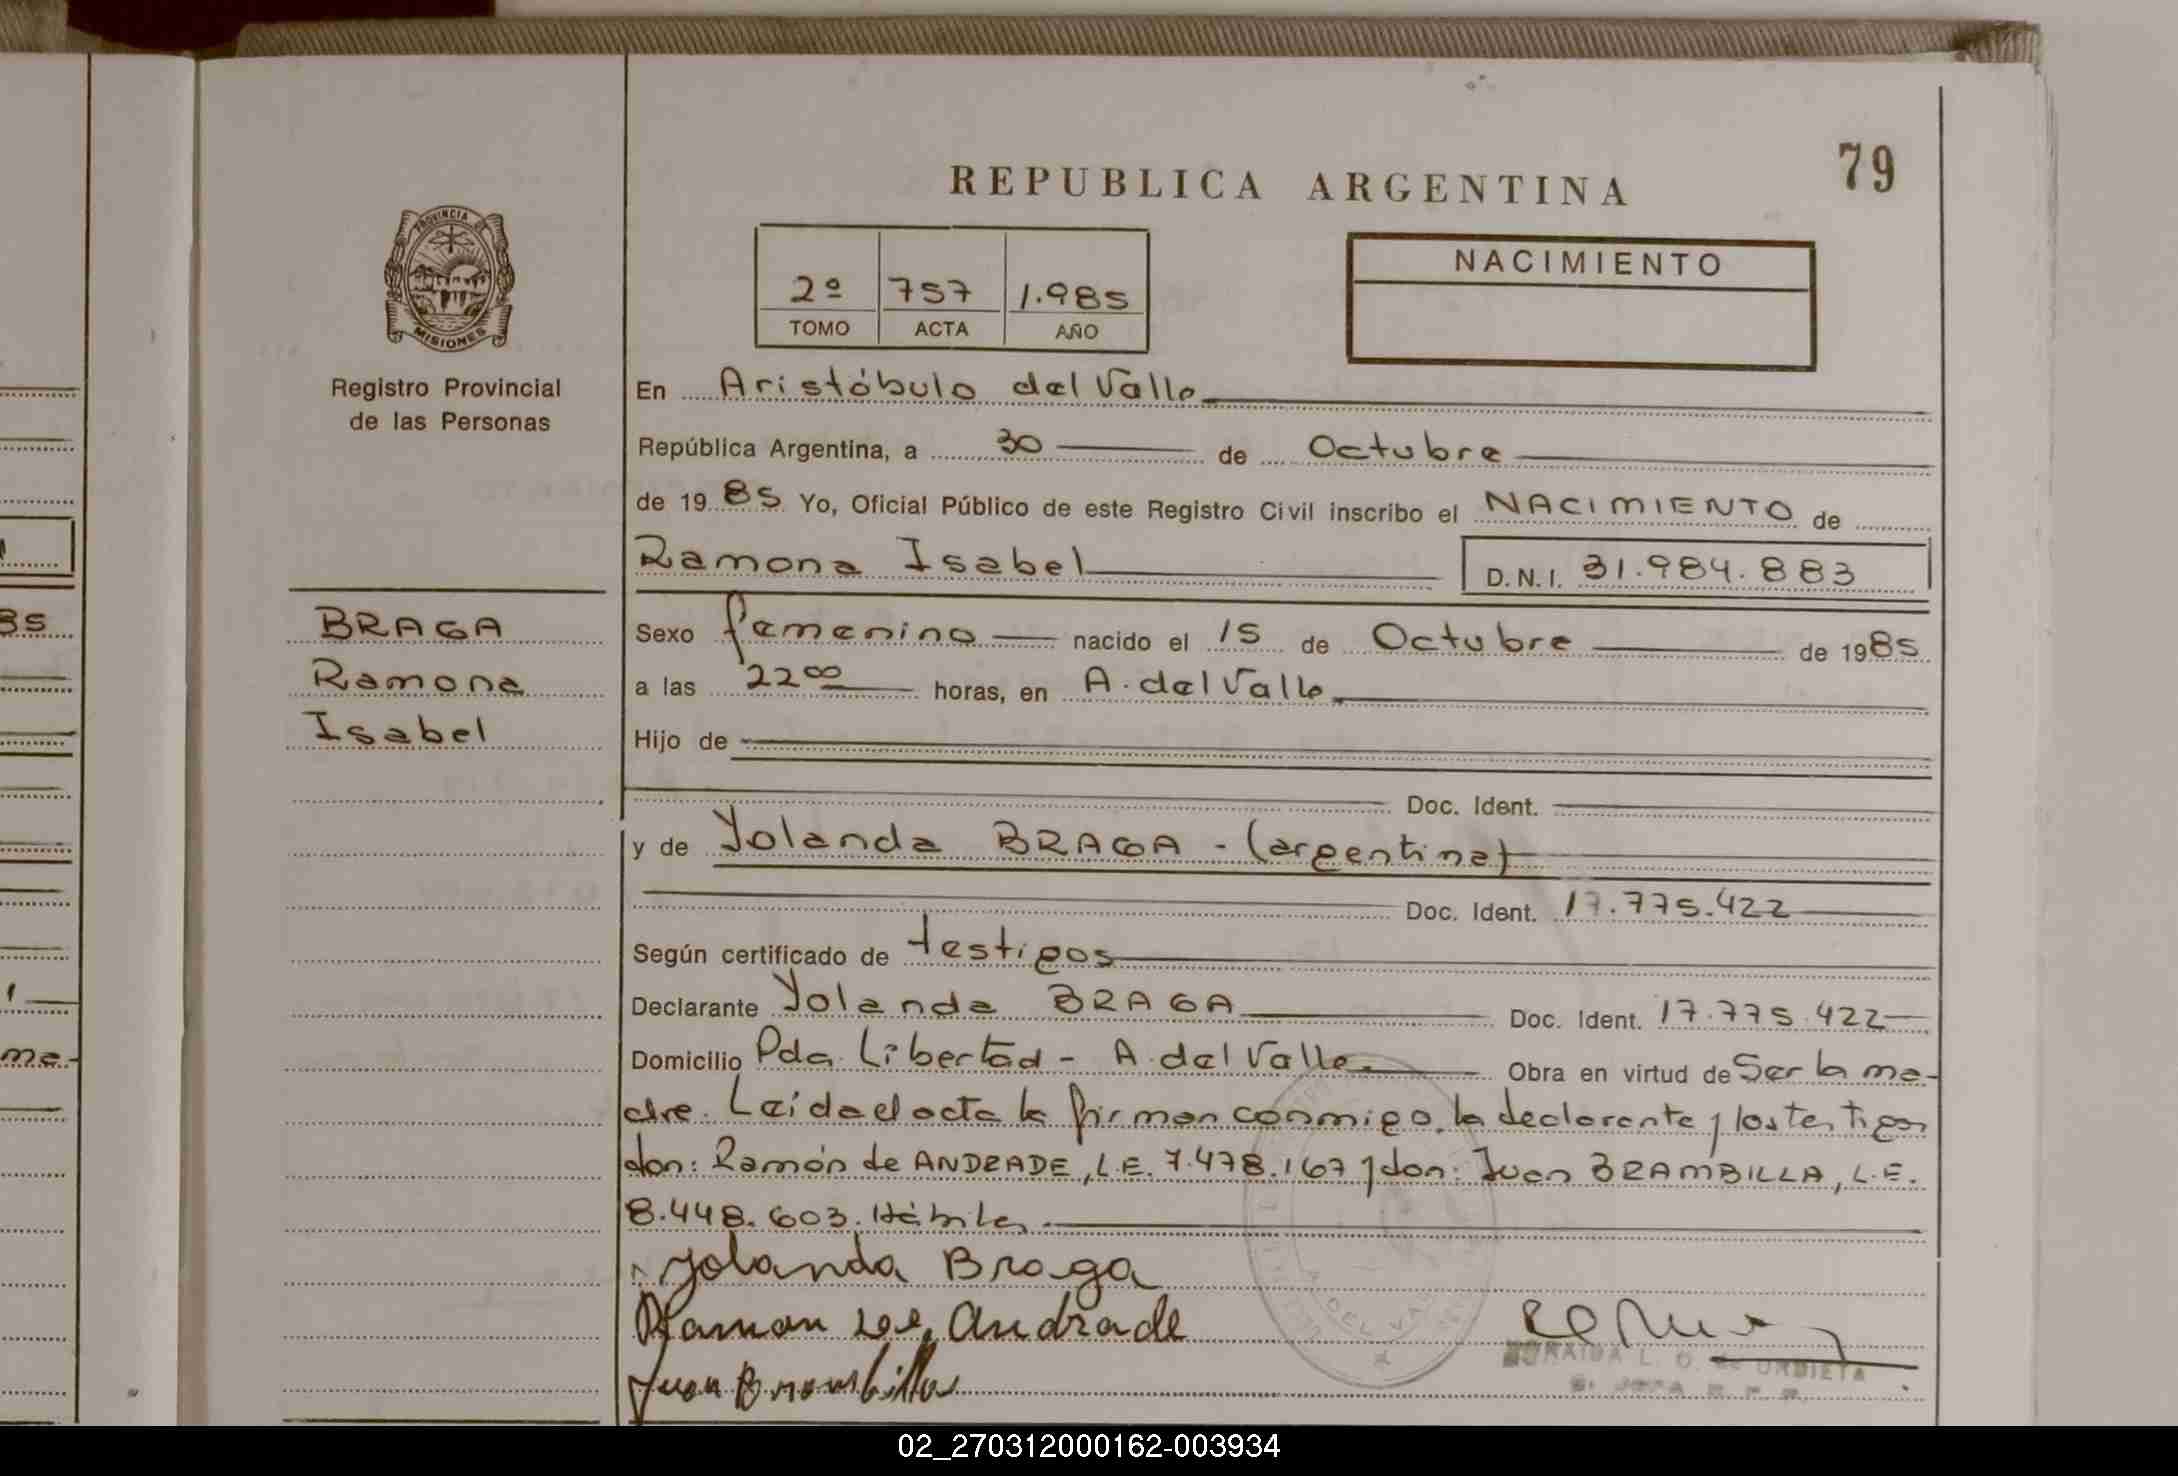 79
REPUBLICA ARGENTINA
PROVINCIA DE
MISIONES
Registro Provincial
de las Personas
2º 757 1.985
TOMO ACTA AÑO
NACIMIENTO
En Aristóbulo del Valle
República Argentina, a 30 de Octubre
de 1985 Yo, Oficial Público de este Registro Civil inscribo el NACIMIENTO de
Ramona Isabel D.N.I. 31.984.883
BRAGA
Ramona
Isabel
Sexo femenino nacido el 15 de Octubre de 1985
a las 22 00 horas, en A. del Valle
Hijo de
Doc. Ident.
y de Yolanda BRAGA - (argentina)
Doc. Ident. 17.775.422
Según certificado de testigos
Declarante Yolanda BRAGA Doc. Ident. 17.775.422
Domicilio Pda. Libertad - A. del Valle Obra en virtud de Ser la ma-
dre. Leída el acta la firman conmigo, la declarante y los testigos
don: Ramón de ANDRADE, L.E. 7.478.167 y don: Juan BRAMBILLA, L.E.
8.448.603. Hábiles
Yolanda Braga
Ramon de Andrade
Juan Brambilla
L. O. de URBIETA
85
me-
02_270312000162-003934